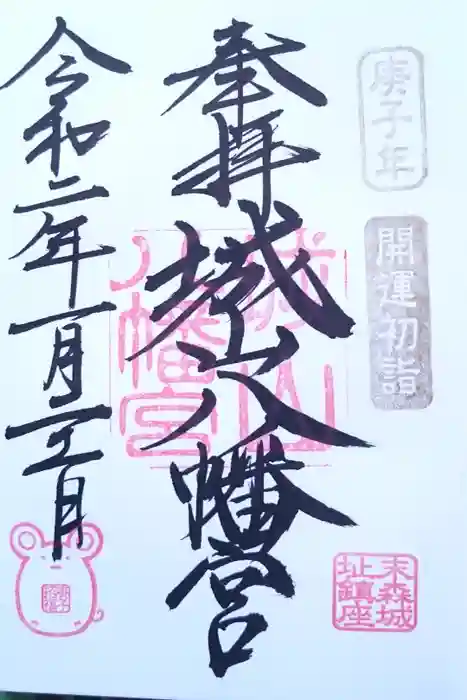 庚子年
開運初詣
奉拝
城山八幡宮
城山
八幡宮
末森城
址鎮座
令和二年一月二日